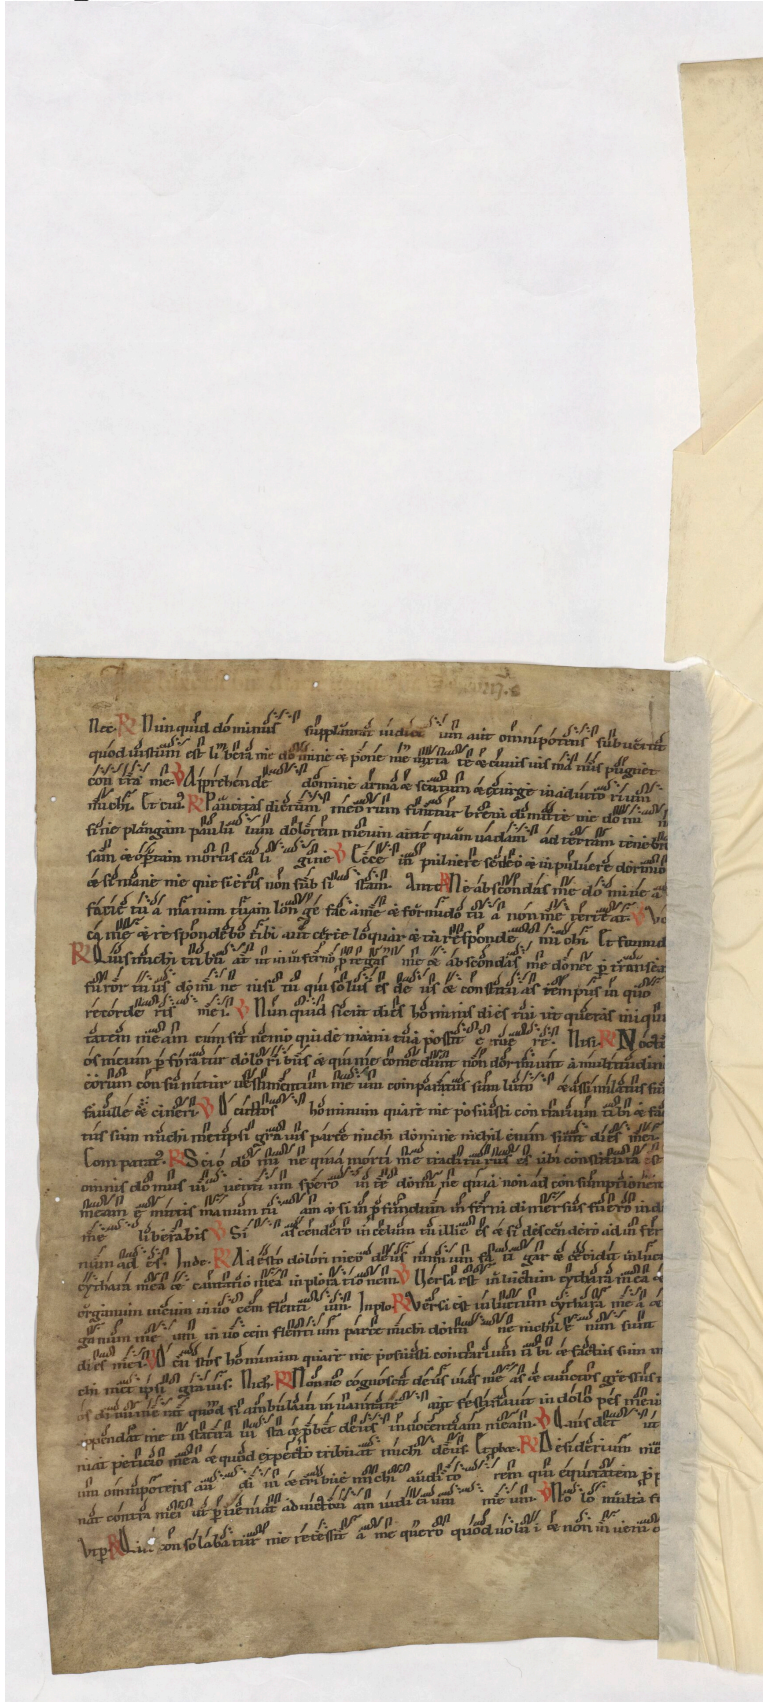 Nec. R Nunquid dominus supplantat iudicium aut omnipotens subuertit
quod iustum est libera me domine & pone me iuxta te & cuiusuis manus pugnet
contra me. V Apprehende domine arma & scutum & exurge in adiutorium
michi. Et cui9 R Paucitas dierum meorum finitur breui dimitte me domi
sine plangam paululum dolorem meum antequam uadam ad terram tenebro
sam & opertam mortis caligine V Ecce in puluere sedeo & in puluere dormio
& si mane me quesieris non subsistam. Ante R Ne abscondas me domine a
facie tua manum tuam longe fac a me & formido tua non me terreat. V Vo
ca me & respondebo tibi aut certe loquar & tu responde michi Et formid
R Quis michi tribuat ut in inferno protegas me & abscondas me donec pertransea
furor tuus domine nisi tu qui solus es deus & constituas tempus in quo
recorderis mei. V Nunquid sicut dies hominis dies tui ut queras iniqui
tatem meam cum sit nemo qui de manu tua possit eruere. Nisi. R Nocte
os meum perforatur doloribus & qui me comedunt non dormiunt a multitudini
eorum consumitur uestimentum meum comparatus sum luto & assimilatus su
fauille & cineri. V O custos hominum quare me posuisti contrarium tibi & fa
tus sum michi metipsi grauis parce michi domine nichil enim sunt dies mei
Comparat9. R Scio domine quia morti me traditurus es ubi constituta est
omnis domus uiuentium spero in te domine quia non ad consumptionem
meam emittis manum tuam & si in profundum inferni dimersus fuero ind
me liberabis V Si ascendero in celum tu illic es & si descendero ad infer
num ad es. Inde. R Adesto dolori meo deus nimium fatigar & cecidit in luc
cythara mea & cantatio mea in plorationem. V Versa est in luctum cythara mea &
organum meum in uocem flentium. Inplo R Versa est in luctum cythara mea &
ganum meum in uocem flentium parce michi domine nichil enim sunt
dies mei. V O custos hominum quare me posuisti contrarium tibi & factus sum m
chi metipsi grauis. Nich. R Nonne cognoscat deus uias meas & cunctos gressus
os dinumerat quod si ambulaui in uanitate aut festinauit in dolo pes meus
appendat me in statera iusta & probet deus innocentiam meam. V Quis det ut
niat peticio mea & quod expecto tribuat michi deus. R Desiderium me
um omnipotens audi in & tribue michi auditorem qui equitatem pro
nat contra me ut perueniat ad uictoriam iudicium meum. V Nolo multa fo
Vt p. R Qui consolabatur me recessit a me quero quod uolui & non inuenio